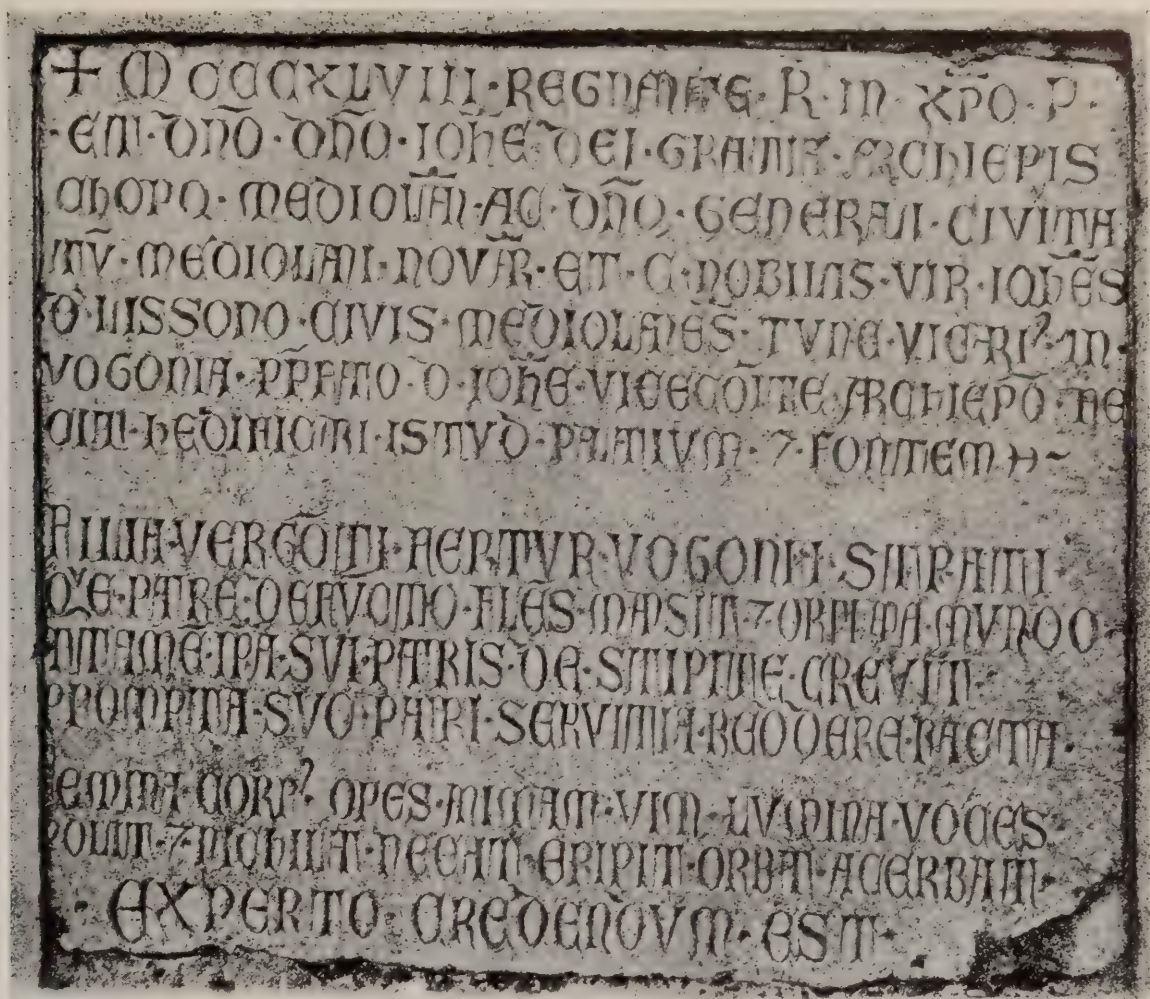 + M CCCXLVIII · REGNANTE · R · IN · XP̄O · P ·
· ET · DN̄O · DN̄O · IOH̄E · DEI · GRATIA · ARCHIEPIS
CHOPO · MEDIOLANI · AC · DN̄O · GENERALI · CIVITA
TŪ · MEDIOLANI · NOVAR̄ · ET · C · NOBILIS · VIR · IOHĒS
D · LISSONO · CIVIS · MEDIOLANĒS · TVNC · VICARI⁹ · IN ·
VOGONIA · PP̄FATO · D · IOH̄E · VICECOĪTE · ARCHIEPŌ · FE
CIT · HEDIFICARI · ISTVD · PALATIVM · 7 · FONTEM
FILIA · VERGONTI · FERTVR · VOGONIA · STRATI ·
QVE · PATRE · DEFVNCTO · FLĒS · MANSIT · 7 · ORFANA · MVNDO ·
TAMĒ · IPA · SVI · PATRIS · DE · STIPITE · CREVIT ·
PROMPTA · SVO · PATRI · SERVITIA · REDDERE · FACTA ·
FEMINA · CORP⁹ · OPES · ANIMAM · VIM · LVMINA · VOCES ·
POLUIT · 7 · NICHILAT · NECAT · ERIPIT · ORBAT · ACERBAT ·
· EXPERTO · CREDENDVM · EST ·